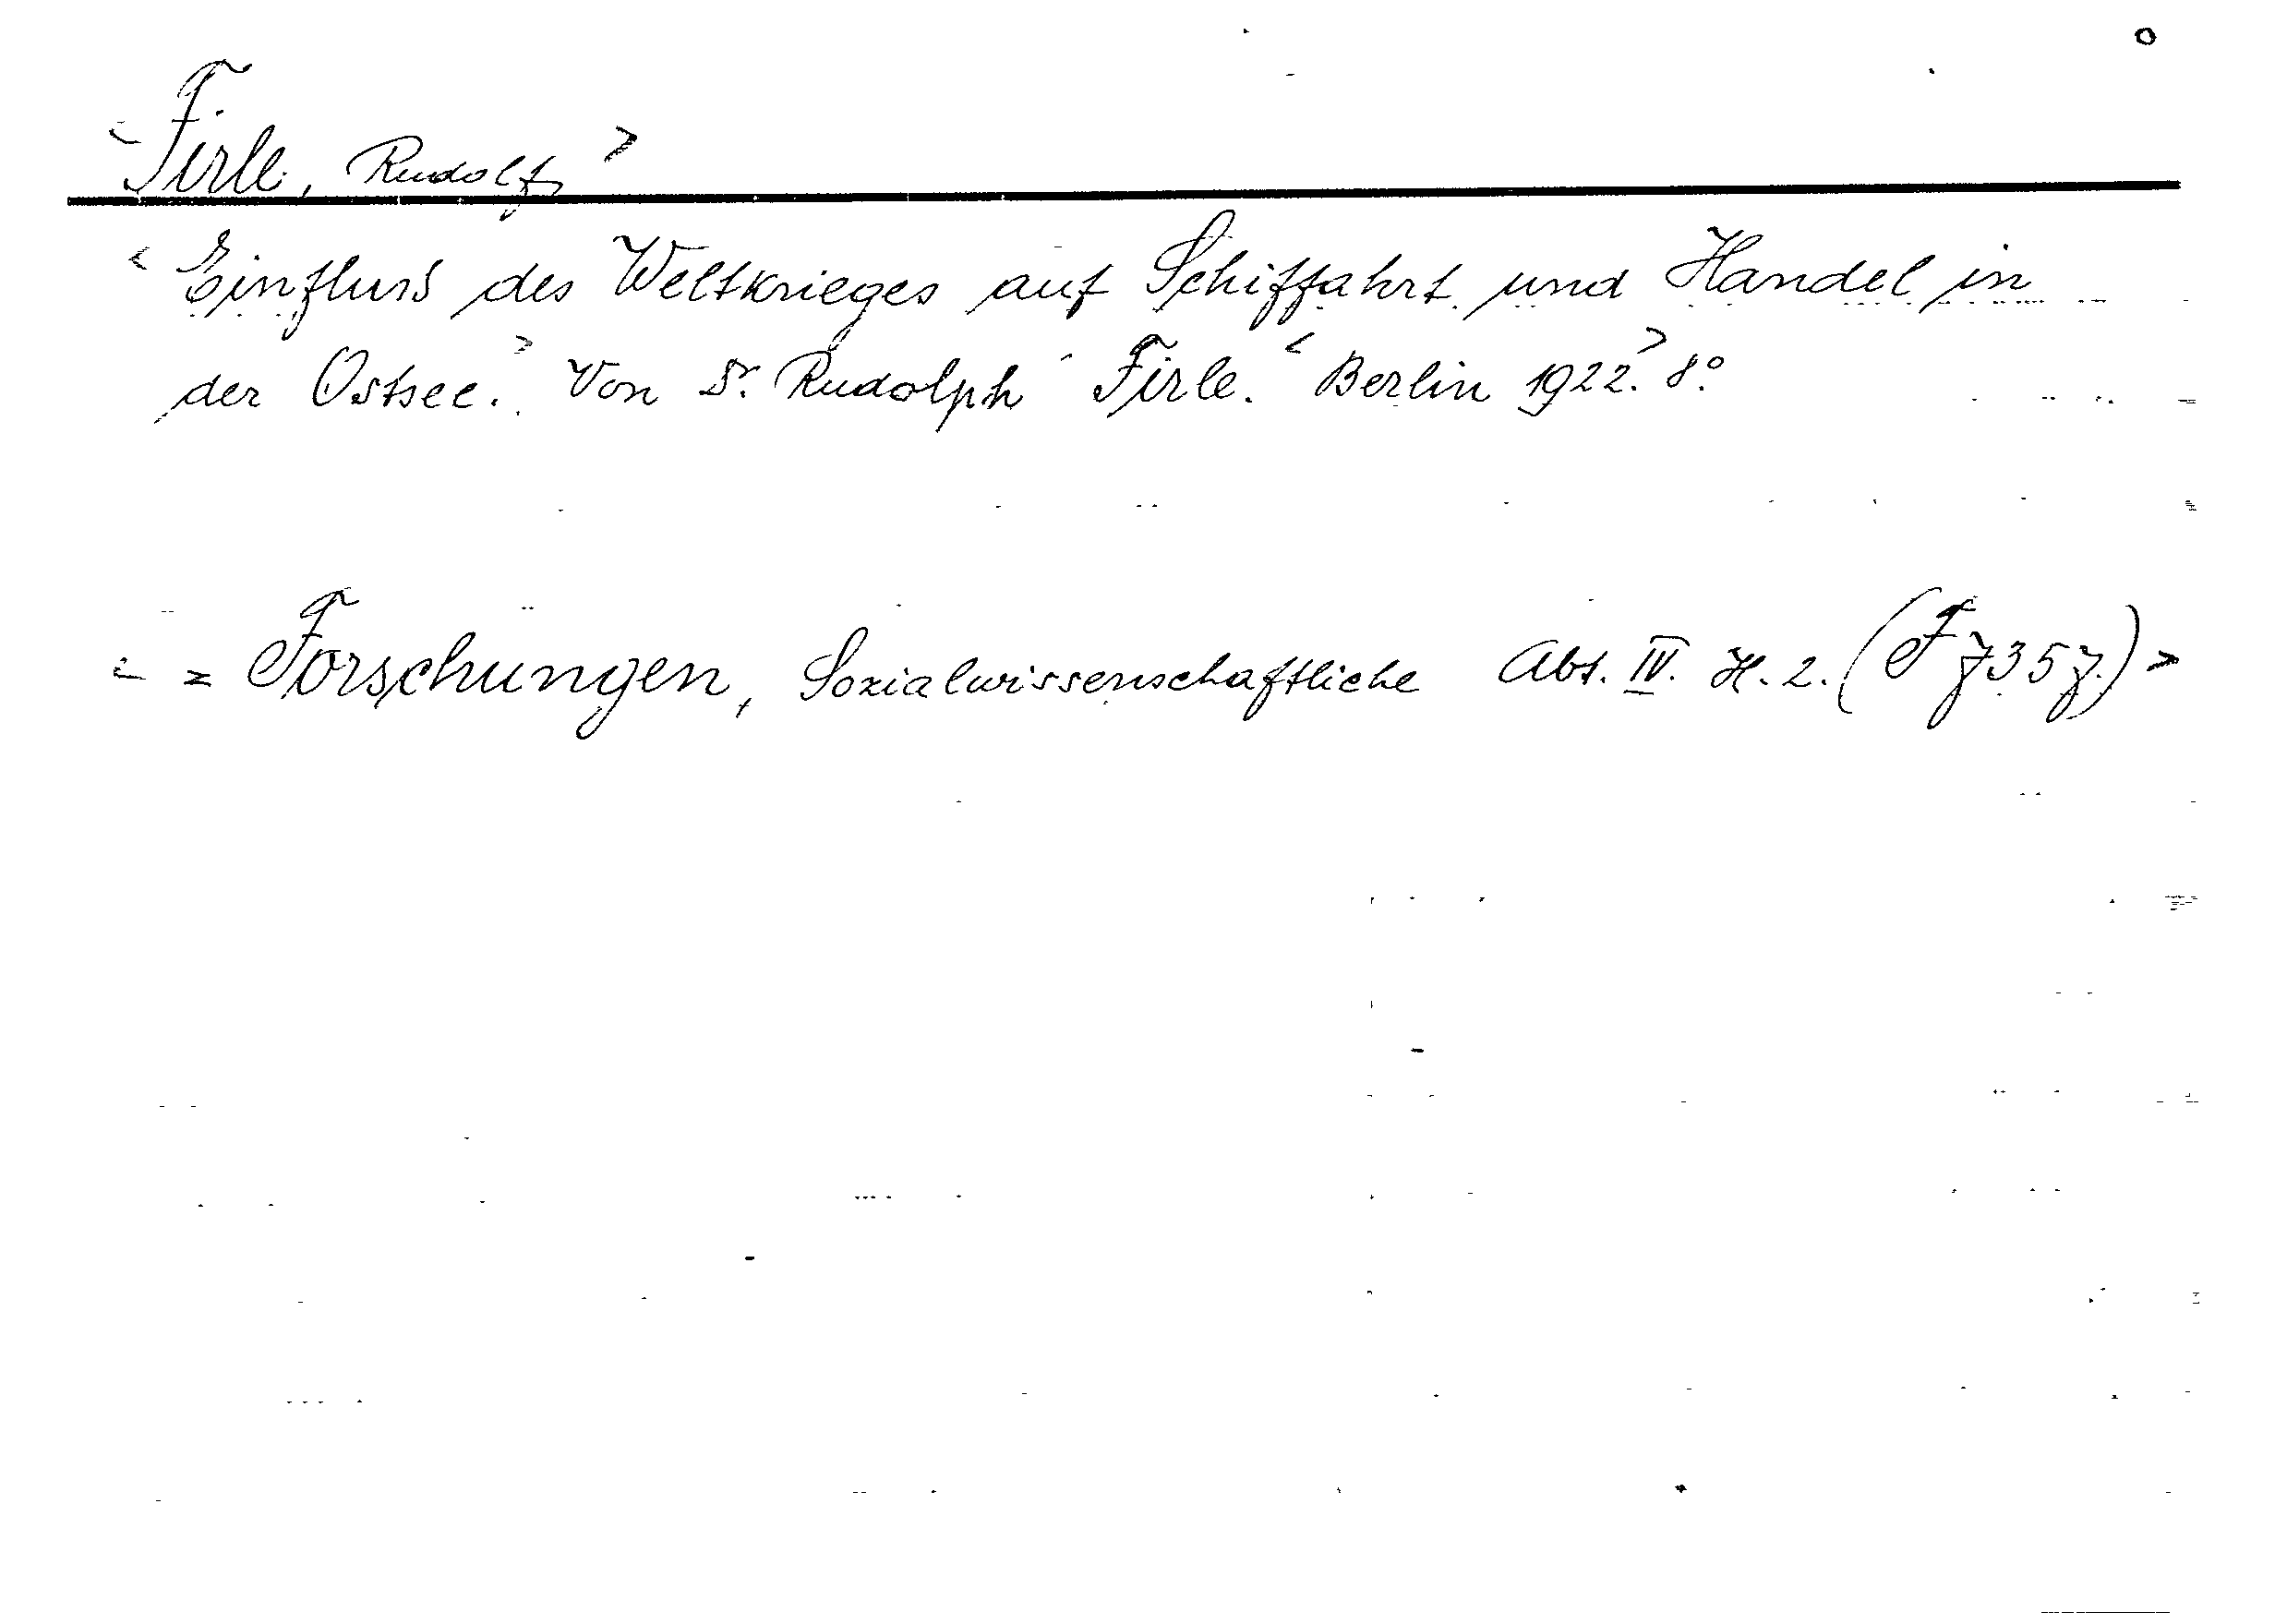 <Firle, Rudolf>
<Einfluss des Weltkrieges auf Schiffahrt und Handel in
der Ostsee.> Von Dr. Rudolph Firle. <Berlin 1922.> 8°.
< = Forschungen, Sozialwissenschaftliche Abt. IV. H. 2. (F 735 z.)>